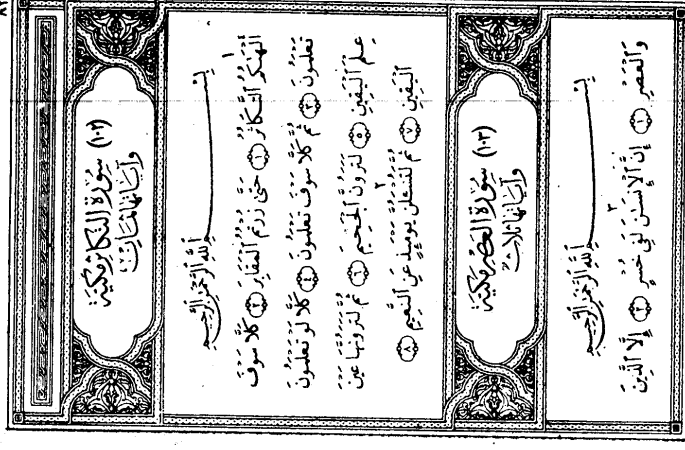 (١٠٢) سُورَةُ التَّكَاثُرِ مَكِّيَّة
وَآيَاتُهَا ثَمَانٍ
بِسْمِ ٱللَّهِ ٱلرَّحْمَٰنِ ٱلرَّحِيمِ
أَلْهَىٰكُمُ ٱلتَّكَاثُرُ ١ حَتَّىٰ زُرْتُمُ ٱلْمَقَابِرَ ٢ كَلَّا سَوْفَ
تَعْلَمُونَ ٣ ثُمَّ كَلَّا سَوْفَ تَعْلَمُونَ ٤ كَلَّا لَوْ تَعْلَمُونَ
عِلْمَ ٱلْيَقِينِ ٥ لَتَرَوُنَّ ٱلْجَحِيمَ ٦ ثُمَّ لَتَرَوُنَّهَا عَيْنَ
ٱلْيَقِينِ ٧ ثُمَّ لَتُسْـَٔلُنَّ يَوْمَئِذٍ عَنِ ٱلنَّعِيمِ ٨
(١٠٣) سُورَةُ الْعَصْرِ مَكِّيَّة
وَآيَاتُهَا ثَلَاثٌ
بِسْمِ ٱللَّهِ ٱلرَّحْمَٰنِ ٱلرَّحِيمِ
وَٱلْعَصْرِ ١ إِنَّ ٱلْإِنسَٰنَ لَفِى خُسْرٍ ٢ إِلَّا ٱلَّذِينَ